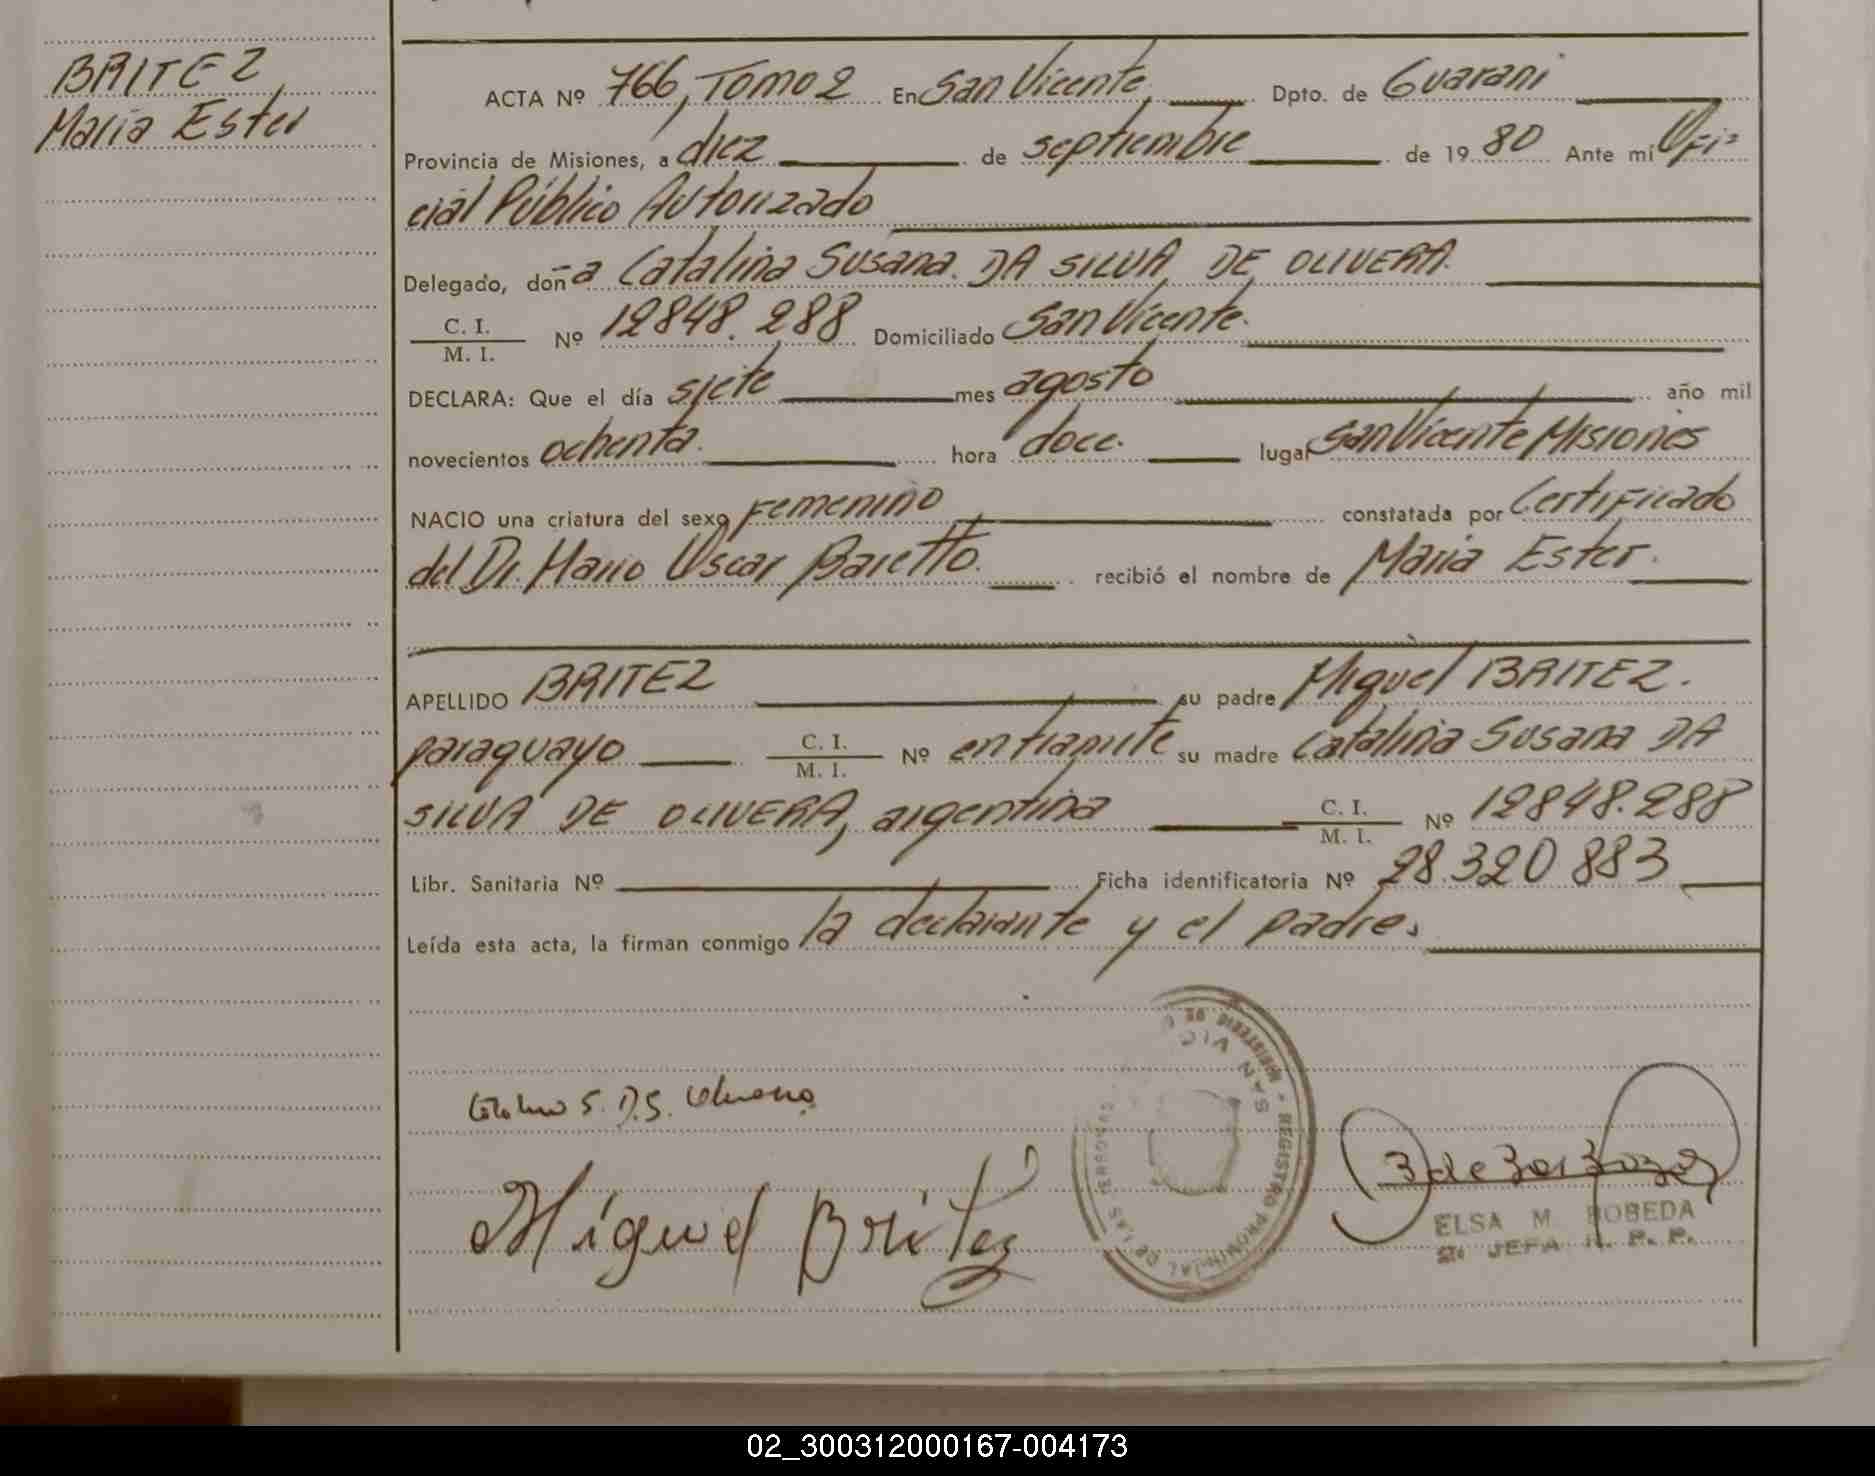 BRITEZ
Maria Ester
ACTA Nº 766, TOMO 2 En San Vicente, Dpto. de Guarani
Provincia de Misiones, a diez de septiembre de 1980 Ante mí Ofi=
cial Público Autorizado
Delegado, doña Catalina Susana DA SILVA DE OLIVERA.
C. I.
M. I. Nº 12848.288 Domiciliado San Vicente.
DECLARA: Que el día siete mes agosto año mil
novecientos ochenta. hora doce. lugar San Vicente Misiones
NACIO una criatura del sexo Femenino constatada por Certificado
del Dr. Mario Oscar Baretto. recibió el nombre de Maria Ester.
APELLIDO BRITEZ su padre Miguel BRITEZ.
paraguayo C. I.
M. I. Nº en tramite su madre Catalina Susana DA
SILVA DE OLIVERA, argentina C. I.
M. I. Nº 12848.288
Libr. Sanitaria Nº Ficha identificatoria Nº 28.320 883
Leída esta acta, la firman conmigo la declarante y el padre.
S. D. S.
Miguel Britez
REGISTRO PROVINCIAL DE LAS PERSONAS
SAN VIC
ELSA M. BOBEDA
JEFA R. P. P.
02_300312000167-004173